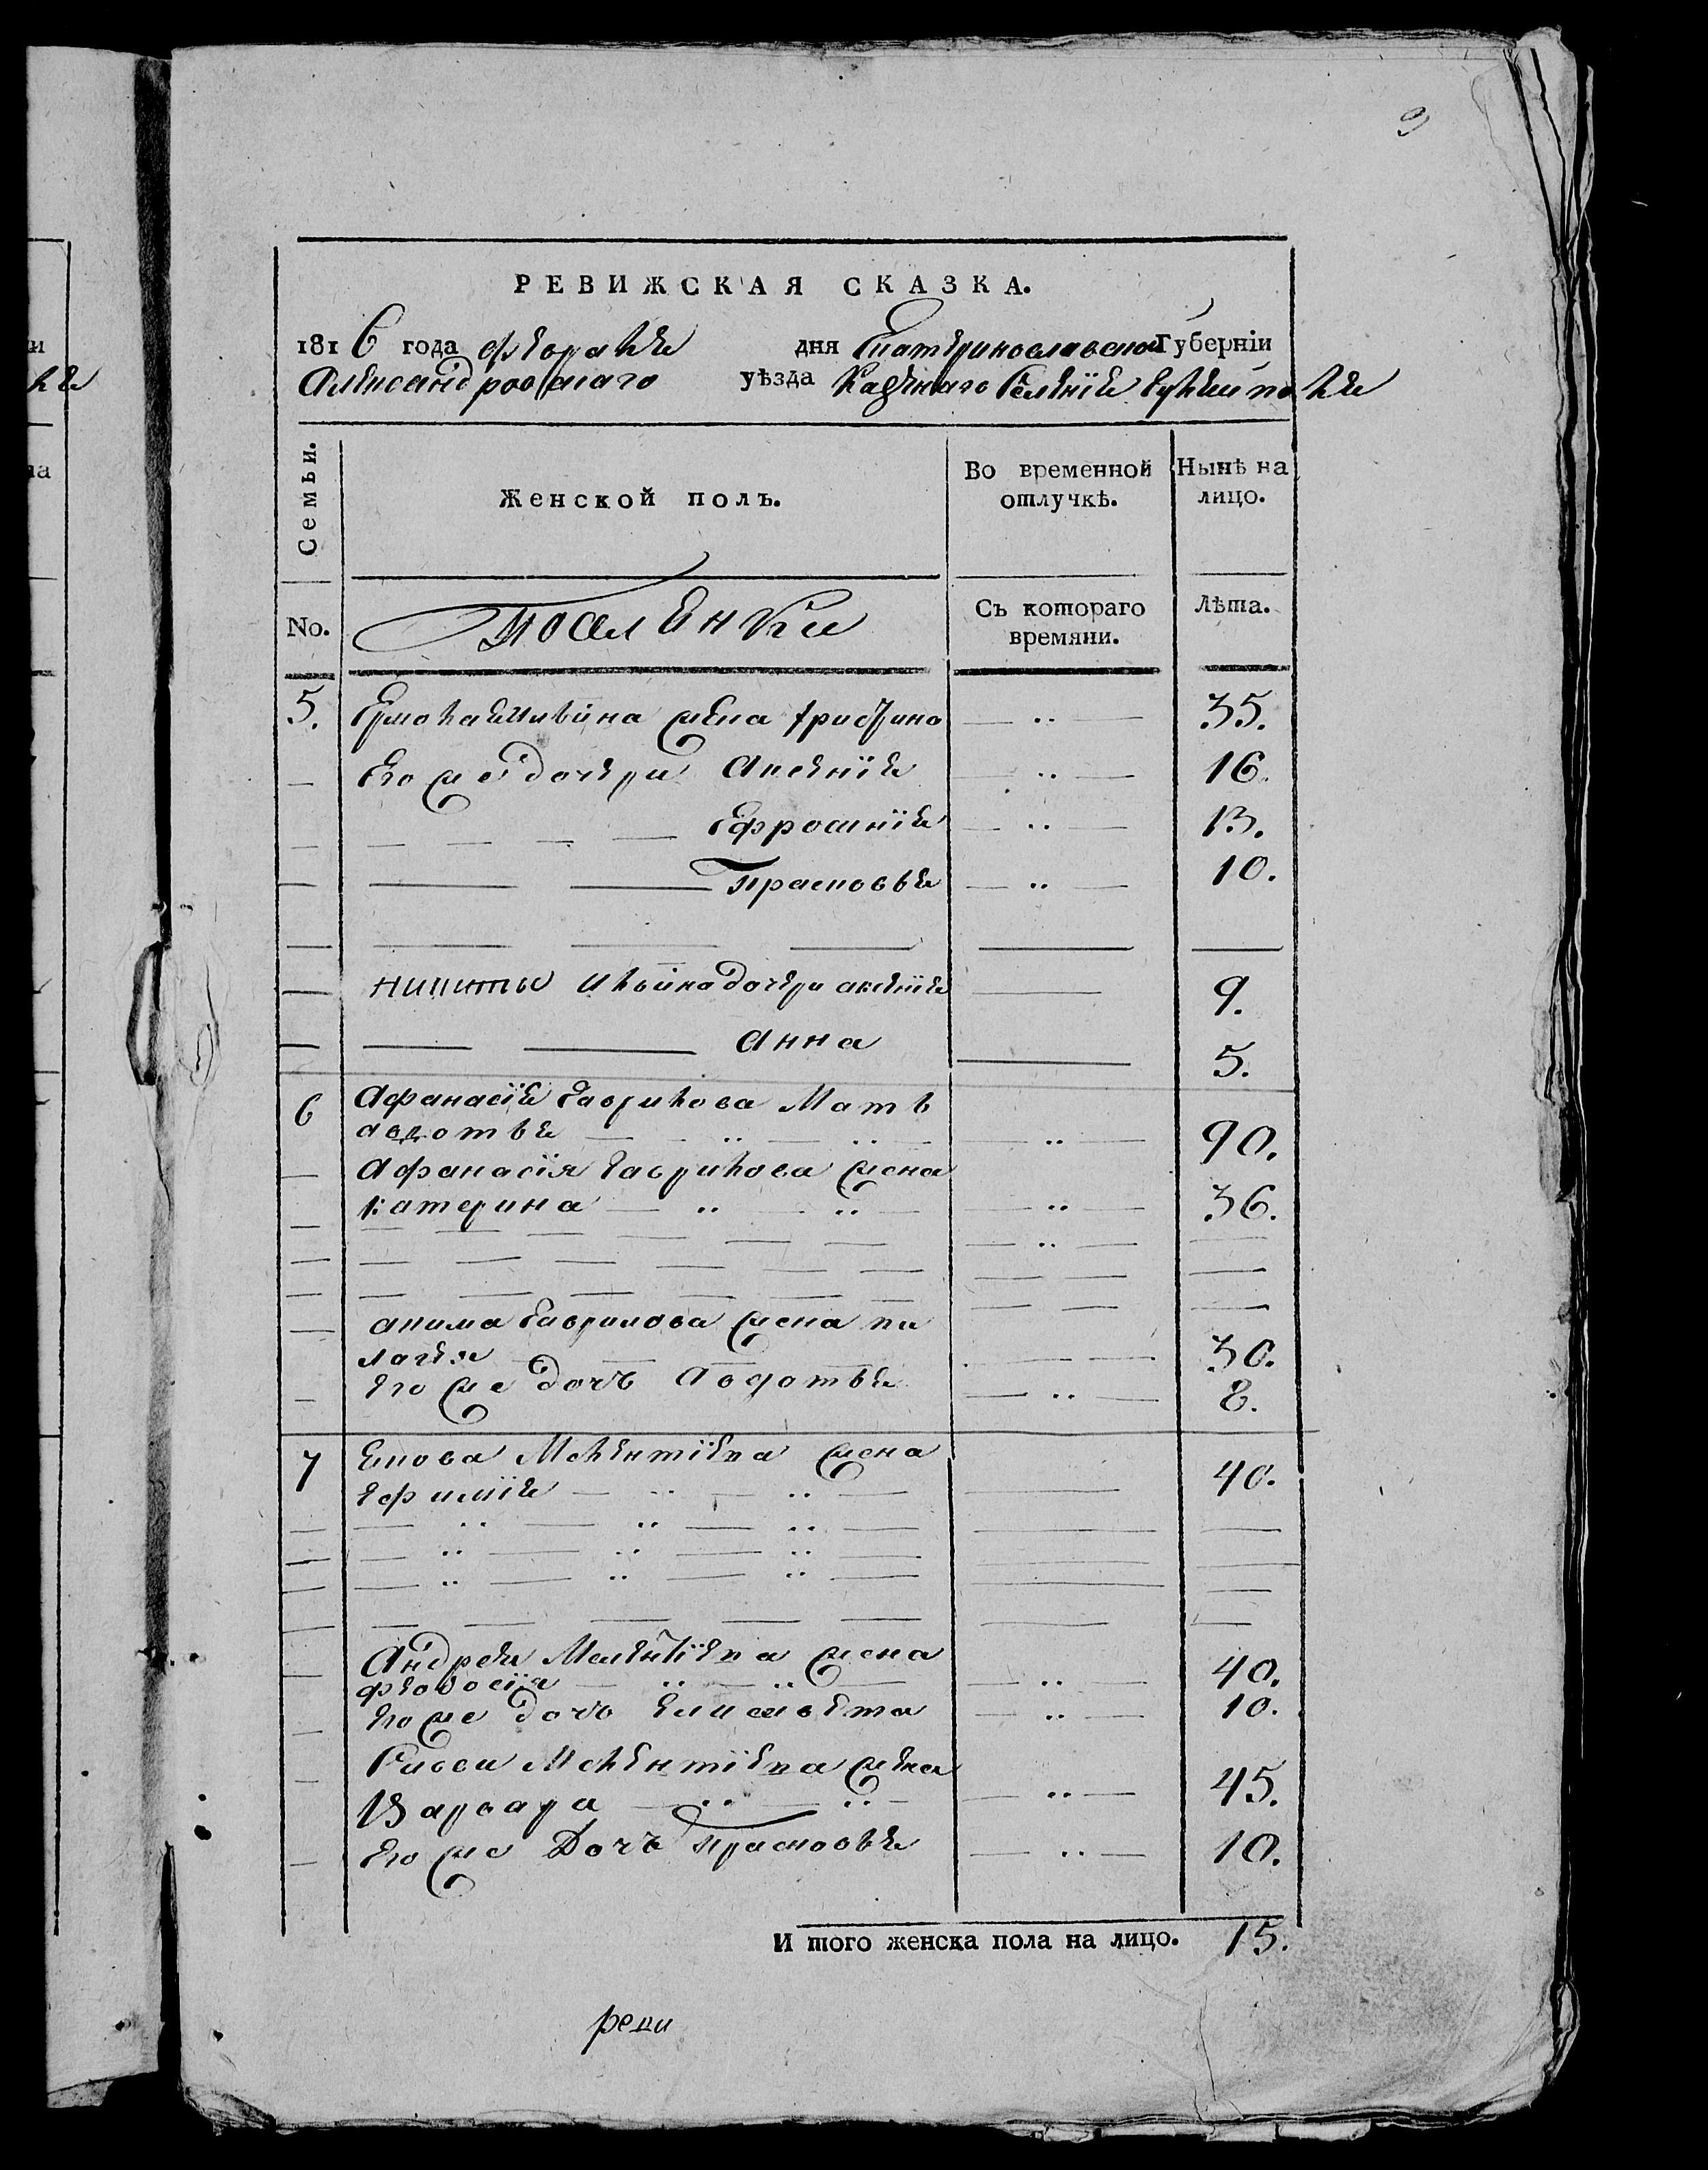 9
РЕВИЖСКАЯ СКАЗКА.
1816 года февраля дня Екатеринославской Губерніи
Александровскаго уѣзда Казеннаго Селенія
Семьи.
Женской полъ.
Во временной отлучкѣ.
Нынѣ на лицо.
No.
Поселенки
Съ котораго времяни.
Лѣта.
5. жена 35.
Его же дочери Аксенія 16.
Ефросинія 13.
Прасковья 10.
Никиты дочери аксенія 9.
Анна 5.
6 Афанасія Гаврилова Мать
авдотья 90.
Афанасія Гаврилова жена
катерина 36.
акима Гаврилова жена пи
лагея 30.
Его же дочь Авдотья 8.
7 жена
Ефимія 40.
Андрея жена
феодосія 40.
Его же дочь Елисавета 10.
жена
Варвара 45.
Его же Дочь прасковья 10.
И того женска пола на лицо. 15.